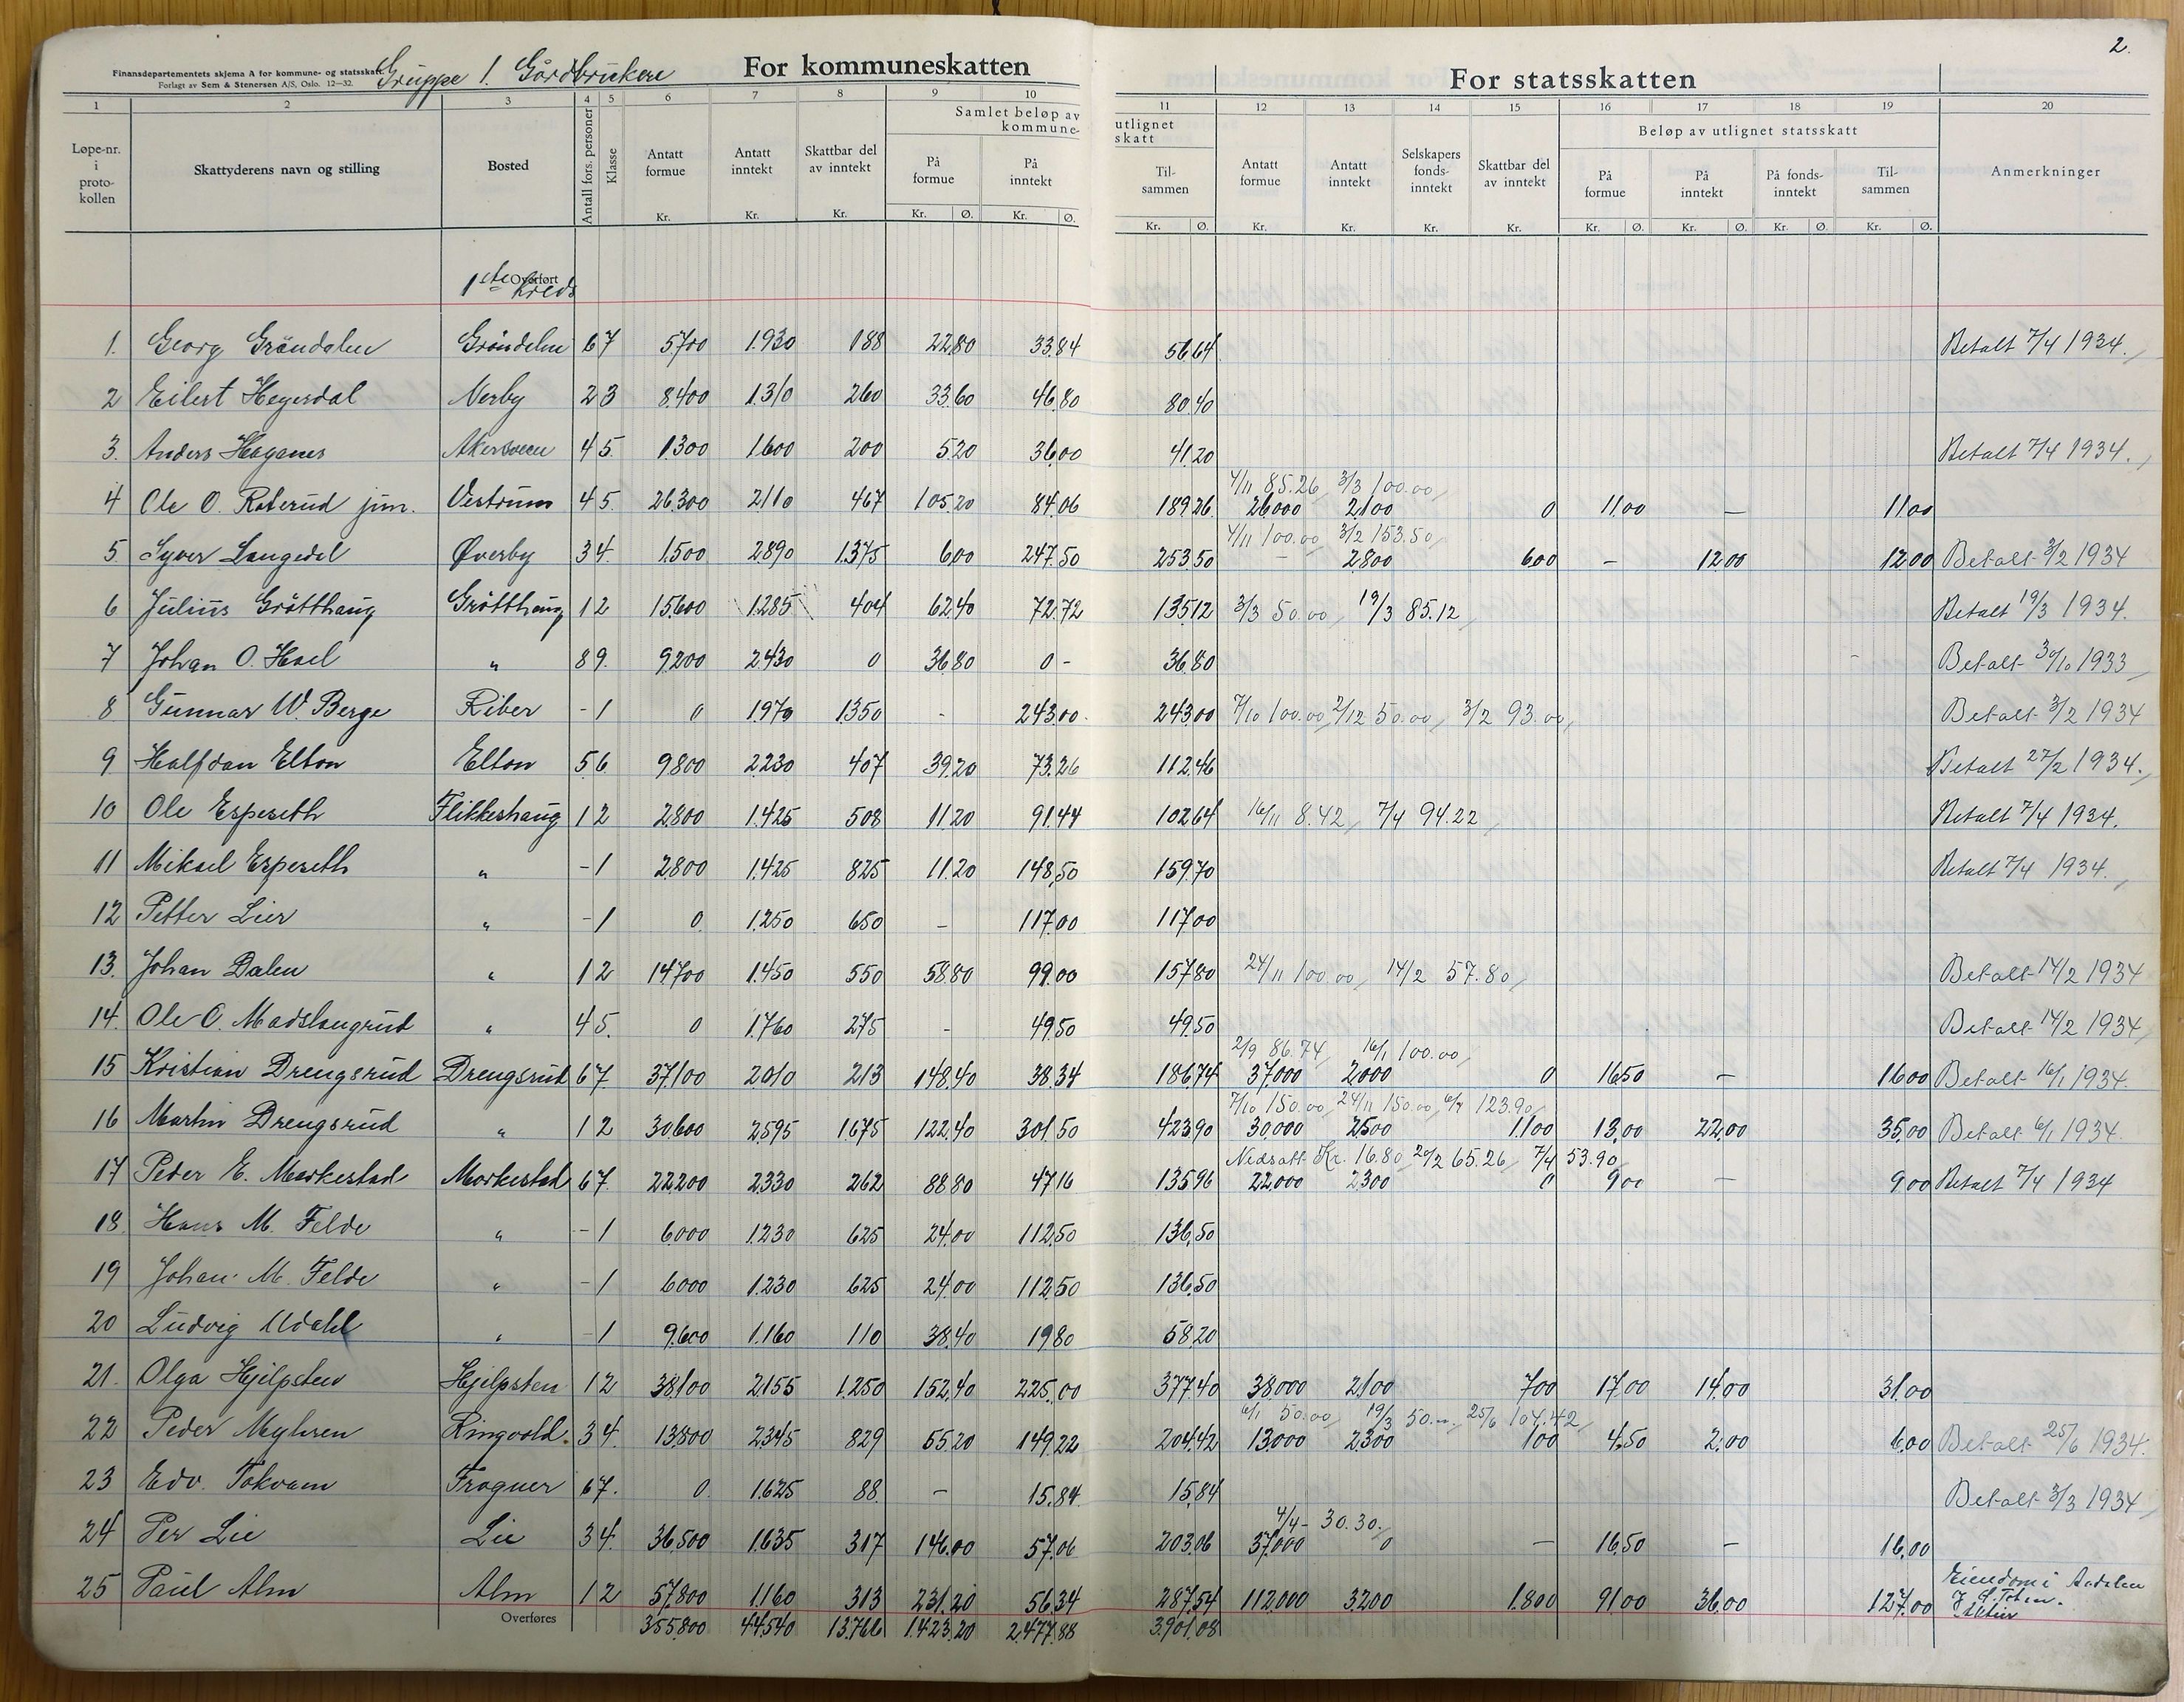 2.
Finansdepartementets skjema A for kommune- og statsskatt.
Forlagt av Sem & Stenersen A/S, Oslo. 12—32.
Gruppe 1. Gårdbrukere
For kommuneskatten
For statsskatten
1 2 3 4 5 6 7 8 9 10 11 12 13 14 15 16 17 18 19 20
Løpe-nr. i proto-kollen
Skattyderens navn og stilling
Bosted
Antall fors. personer
Klasse
Antatt formue
Antatt inntekt
Skattbar del av inntekt
Samlet beløp av kommune-
På formue
På inntekt
utlignet skatt
Til-sammen
Antatt formue
Antatt inntekt
Selskapers fonds-inntekt
Skattbar del av inntekt
Beløp av utlignet statsskatt
På formue
På inntekt
På fonds-inntekt
Til-sammen
Anmerkninger
Kr. Kr. Kr. Kr. Ø. Kr. Ø. Kr. Ø. Kr. Kr. Kr. Kr. Kr. Ø. Kr. Ø. Kr. Ø. Kr. Ø.
Overført
1ste Kreds
1. Georg Gröndalen Gröndalen 6 7 5700 1.930 188 22.80 33.84 56.64 Betalt 7/4 1934.
2 Eilert Heyerdal Nerby 2 3 8.400 1.310 260 33.60 46.80 80.40
3. Anders Haganes Akersveen 4 5. 1.300 1.600 200 5.20 36.00 41.20 Betalt 7/4 1934.
4/11 85.26 3/3 100.00
4 Ole O. Roterud jun. Vestrum 4 5. 26.300 2110 467 105.20 84.06 189.26 26000 2.100 0 11.00 — 11.00
4/11 100.00 3/2 153.50
5 Syver Langedal Øverby 3 4. 1.500 2.890 1.375 6.00 247.50 253.50 — 2.800 600 — 12.00 12.00 Betalt 3/2 1934
6 Julius Gråtthaug Gråtthaug 1 2 15.600 1.285 404 62.40 72.72 135.12 3/3 50.00 19/3 85.12 Betalt 19/3 1934.
7 Johan O. Hoel " 8 9. 9.200 2.430 0 36.80 0 - 36.80 Betalt 30/10 1933
8 Gunnar W. Berge Riber - 1 0 1.970 1350 - 243.00 243.00 7/10 100.00 2/12 50.00 3/2 93.00 Betalt 3/2 1934
9 Halfdan Elton Elton 5 6 9800 2.230 407 39.20 73.26 112.46 Betalt 27/2 1934.
10 Ole Espeseth Flikkeshaug 1 2 2.800 1.425 508 11.20 91.44 102.64 16/11 8.42 7/4 94.22 Betalt 7/4 1934.
11 Mikael Espeseth " - 1 2.800 1.425 825 11.20 148.50 159.70 Betalt 7/4 1934.
12 Petter Lier " - 1 0. 1.250 650 - 117.00 117.00
13. Johan Dalen " 1 2 14.700 1.450 550 58.80 99.00 157.80 24/11 100.00 14/2 57.80 Betalt 14/2 1934
14. Ole O. Madslangrud " 4 5. 0 1.760 275 - 49.50 49.50 Betalt 14/2 1934
2/9 86.74 16/1 100.00
15 Kristian Drengsrud Drengsrud 6 7 37.100 2.010 213 148.40 38.34 186.74 37.000 2.000 0 16.50 — 16.00 Betalt 16/1 1934.
7/10 150.00 24/11 150.00 6/1 123.90
16 Martin Drengsrud " 1 2 30.600 2.595 1675 122.40 301.50 423.90 30.000 2.500 1.100 13.00 22.00 35.00 Betalt 6/1 1934.
Nedsatt Kr. 16.80 20/2 65.26 7/4 53.90
17 Peder E. Markestad Markestad 6 7. 22.200 2.330 262 88.80 47.16 135.96 22.000 2.300 0 9.00 — 9.00 Betalt 7/4 1934
18. Hans M. Felde " - 1 6.000 1.230 625 24.00 112.50 136.50
19 Johan M. Felde " - 1 6.000 1.230 625 24.00 112.50 136.50
20 Ludvig Udahl " - 1 9.600 1.160 110 38.40 19.80 58.20
21. Olga Hjelpsten Hjelpsten 1 2 38.100 2.155 1.250 152.40 225.00 377.40 38.000 2.100 700 17.00 14.00 31.00
6/1 50.00 19/3 50.00 25/6 104.42
22 Peder Myhren Ringvold. 3 4. 13.800 2.345 829 55.20 149.22 204.42 13.000 2.300 100 4.50 2.00 6.00 Betalt 25/6 1934.
23 Edv. Tokvam Frogner 6 7. 0. 1.625 88 — 15.84 15.84 Betalt 3/3 1934
4/4 - 30.30.
24 Per Lie Lie 3 4. 36.500 1.635 317 146.00 57.06 203.06 37.000 0 — 16.50 — 16.00
25 Paul Alm Alm 1 2 57.800 1.160 313 231.20 56.34 287.54 112.000 3.200 1.800 91.00 36.00 127.00 Eiendom i
Overføres 355.800 44.540 13.766 1.423.20 2.477.88 3.901.08